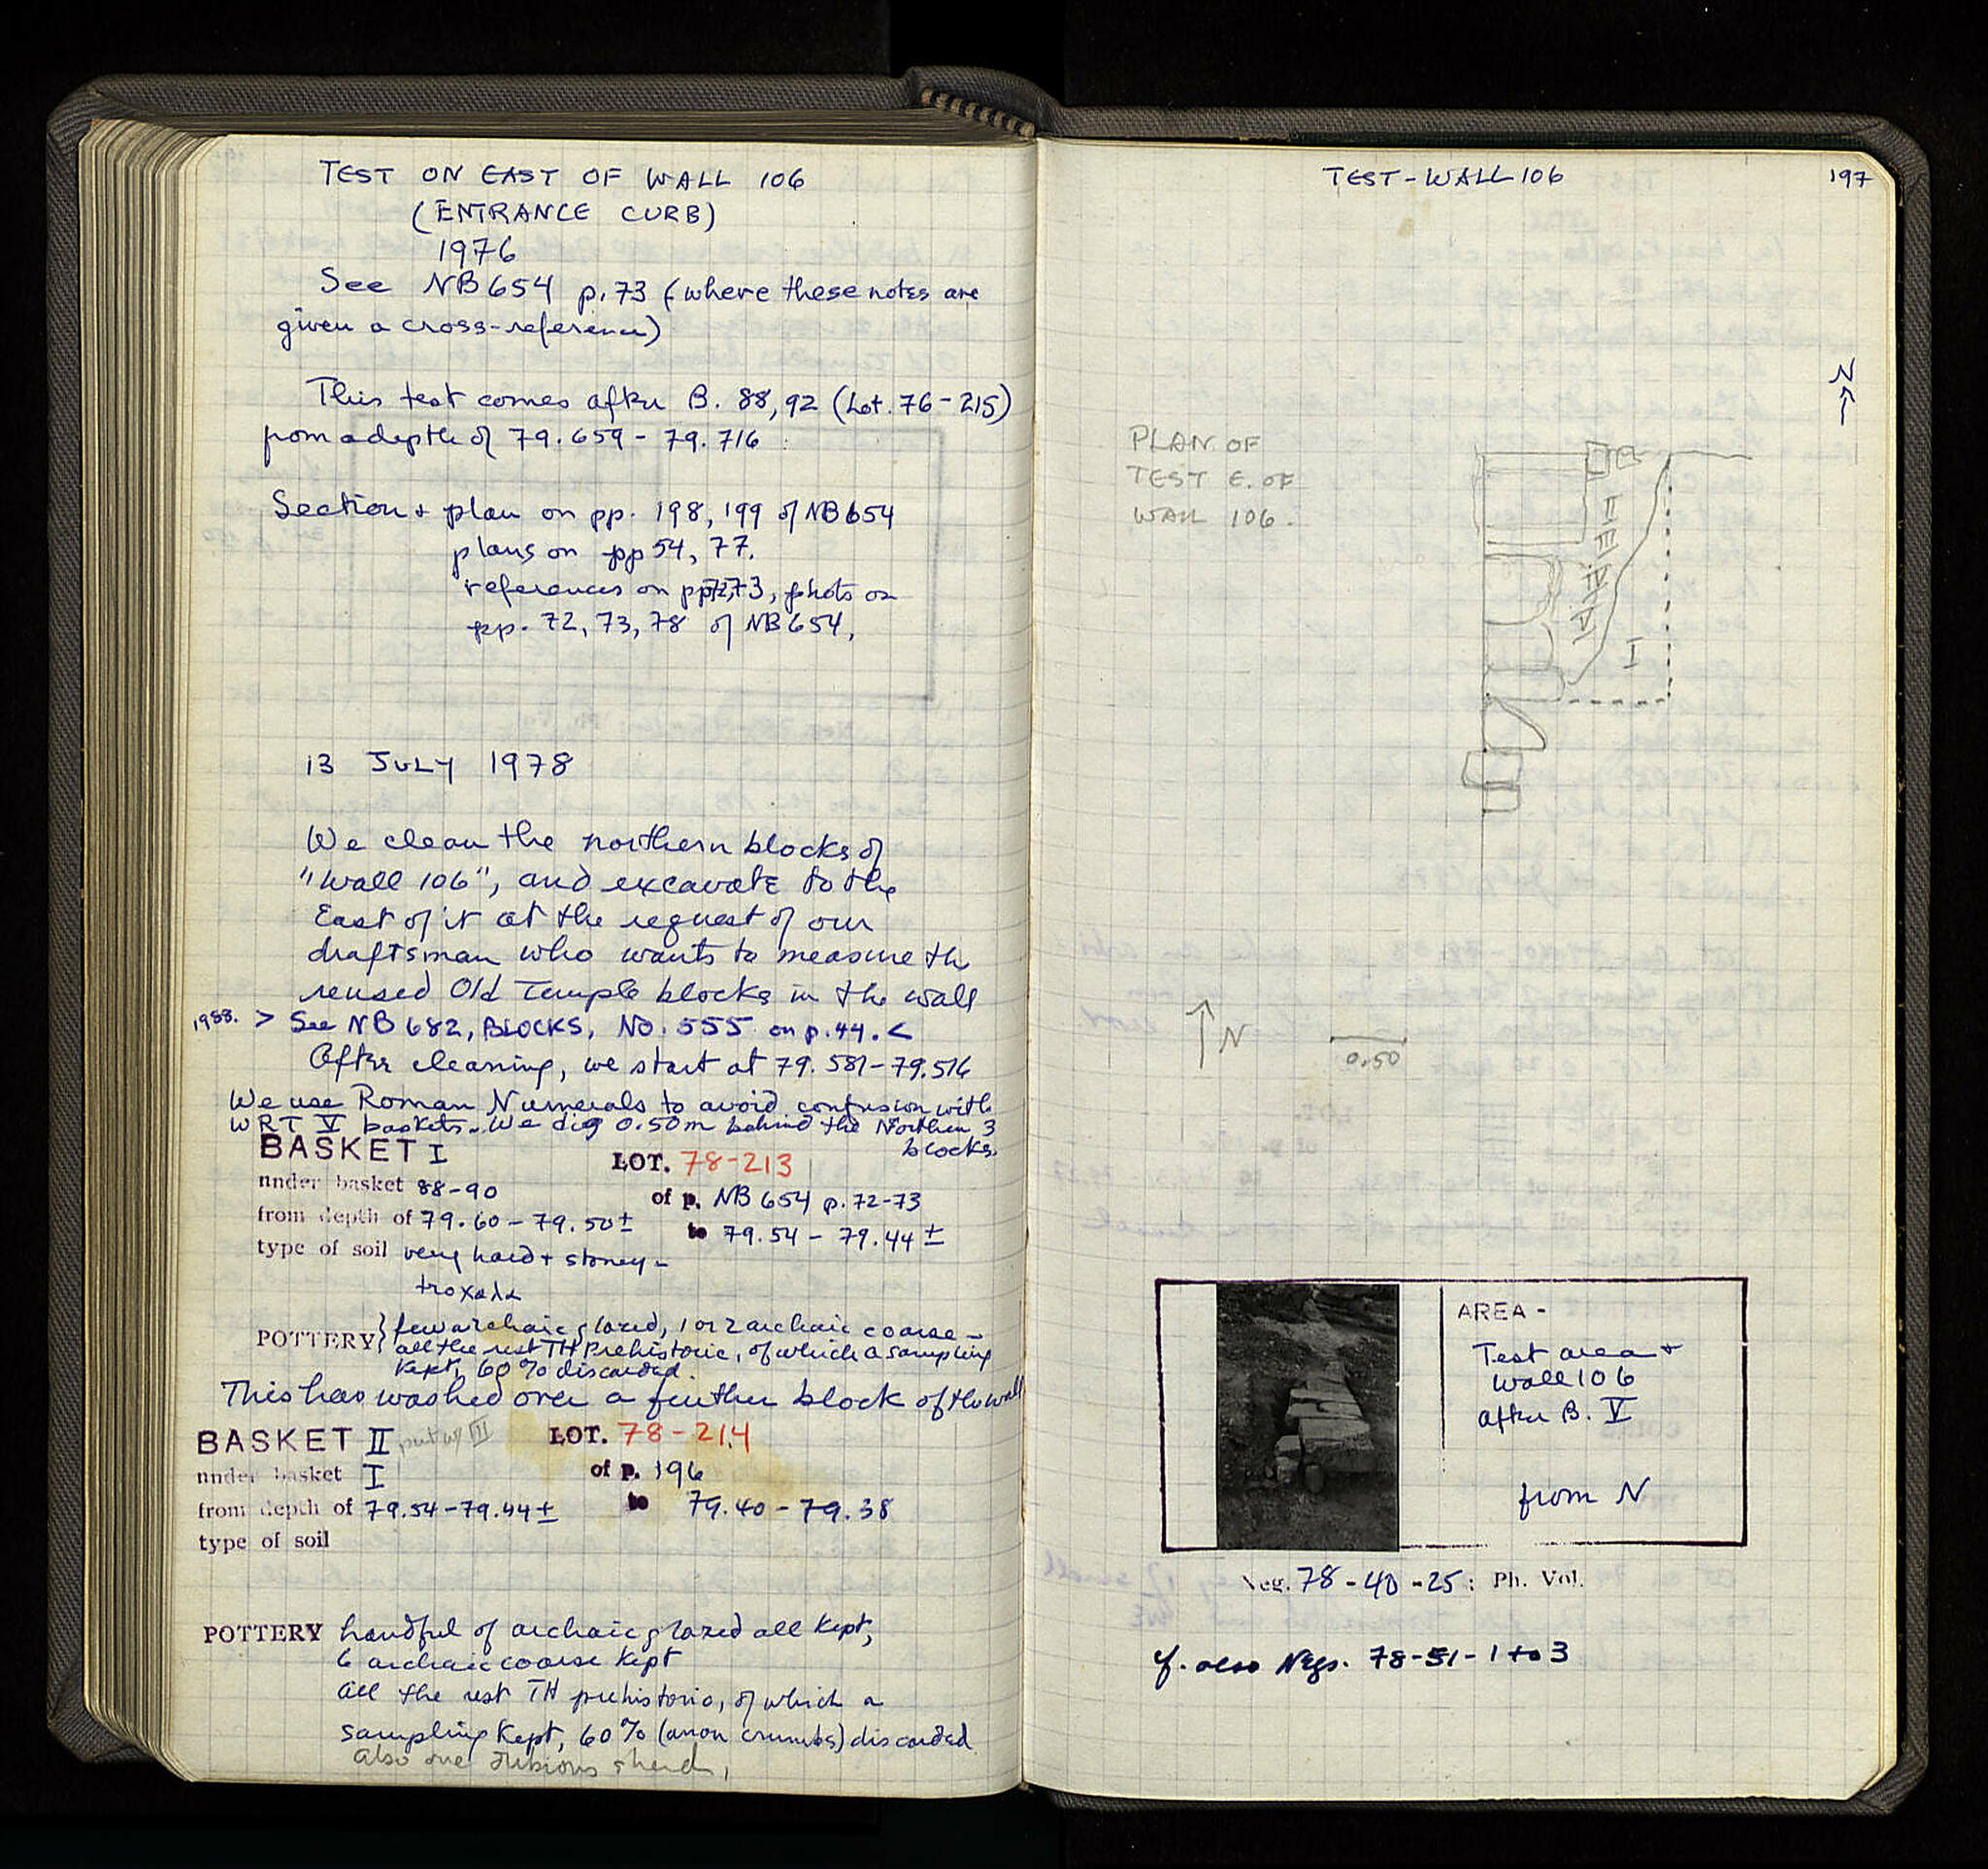 TEST ON EAST OF WALL 106
(ENTRANCE CURB)
1976
See NB 654 p. 73 (where these notes are
given a cross-reference)
This test comes after B. 88, 92 (Lot. 76-215)
from a depth of 79.659 - 79.716
Section + plan on pp. 198, 199 of NB 654
plans on pp 54, 77.
references on pp 72, 73, photo on
pp. 72, 73, 78 of NB 654.
13 JULY 1978
We clean the northern blocks of
"Wall 106", and excavate to the
East of it at the request of our
draftsman who wants to measure the
reused Old Temple blocks in the wall
1988. > See NB 682, BLOCKS, NO. 555 on p. 44. <
After cleaning, we start at 79.581-79.516
We use Roman Numerals to avoid confusion with
WRT V baskets. We dig 0.50m behind the Northern 3
blocks.
BASKET I LOT. 78-213
under basket 88-90 of p. NB 654 p. 72-73
from depth of 79.60 - 79.50± to 79.54 - 79.44±
type of soil very hard + stoney -
τροχαλα
POTTERY } few archaic glazed, 1 or 2 archaic coarse -
all the rest TH Prehistoric, of which a sampling
kept, 60% discarded.
This has washed over a further block of the wall
BASKET II put w/ III LOT. 78-214
under basket I of p. 196
from depth of 79.54-79.44± to 79.40 - 79.38
type of soil
POTTERY handful of archaic glazed all kept,
6 archaic coarse kept
all the rest TH prehistoric, of which a
sampling kept, 60% (crumbs) discarded
Also one dubious sherd,
TEST-WALL 106 197
N
PLAN OF
TEST E. OF
WALL 106.
II
III
IV
V
I
N
0.50
AREA -
Test area +
wall 106
after B. V
from N
Neg. 78-40-25: Ph. Vol.
cf. also Negs. 78-51-1 to 3